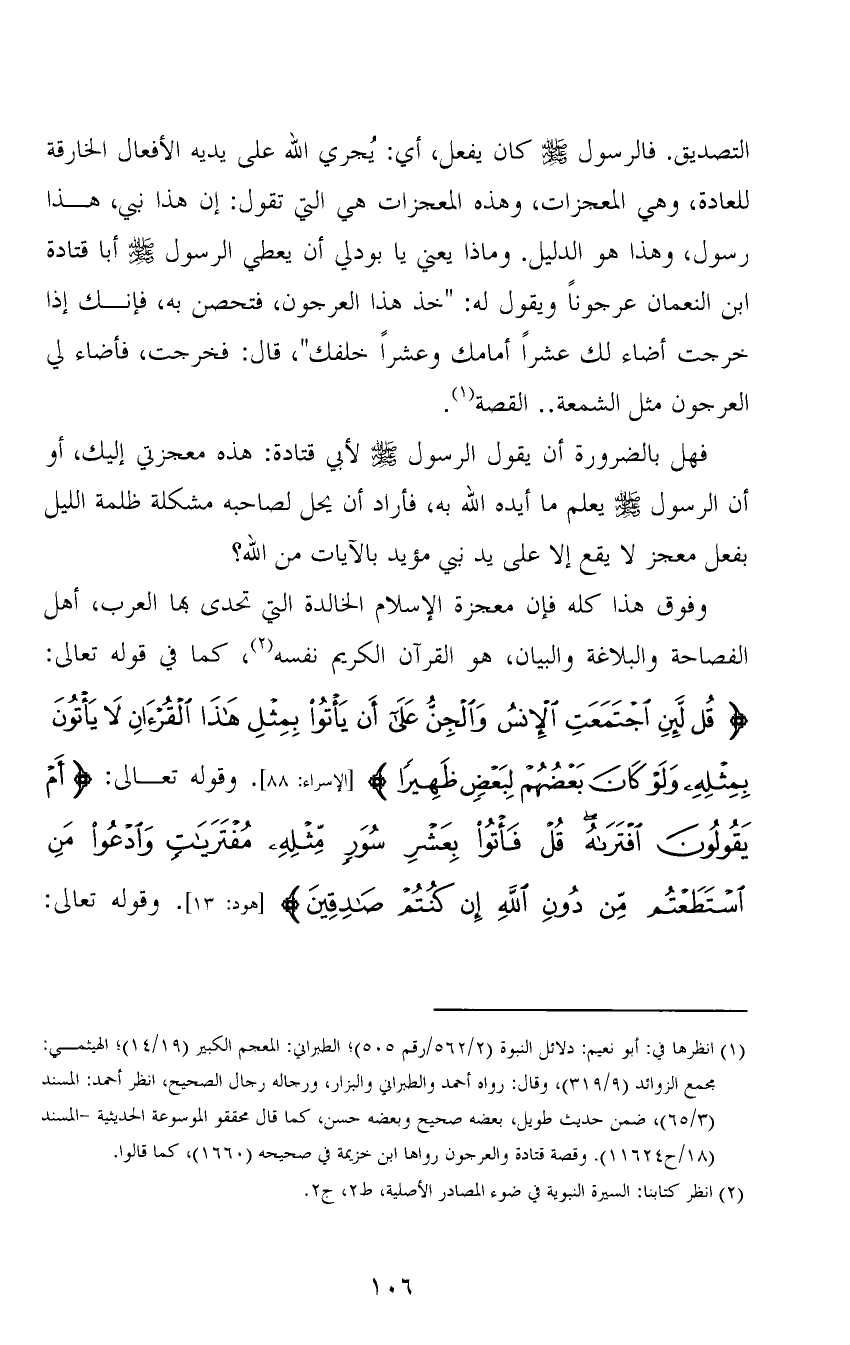 التصديق. فالرسول ﷺ كان يفعل، أي: يُجري الله على يديه الأفعال الخارقة
للعادة، وهي المعجزات، وهذه المعجزات هي التي تقول: إن هذا نبي، هـــذا
رسول، وهذا هو الدليل. وماذا يعني يا بودلي أن يعطي الرسول ﷺ أبا قتادة
ابن النعمان عرجوناً ويقول له: "خذ هذا العرجون، فتحصن به، فإنـــك إذا
خرجت أضاء لك عشراً أمامك وعشراً خلفك"، قال: فخرجت، فأضاء لي
العرجون مثل الشمعة.. القصة(١).
فهل بالضرورة أن يقول الرسول ﷺ لأبي قتادة: هذه معجزتي إليك، أو
أن الرسول ﷺ يعلم ما أيده الله به، فأراد أن يحل لصاحبه مشكلة ظلمة الليل
بفعل معجز لا يقع إلا على يد نبي مؤيد بالآيات من الله؟
وفوق هذا كله فإن معجزة الإسلام الخالدة التي تحدى بها العرب، أهل
الفصاحة والبلاغة والبيان، هو القرآن الكريم نفسه(٢)، كما في قوله تعالى:
﴿ قُل لَّئِنِ ٱجْتَمَعَتِ ٱلْإِنسُ وَٱلْجِنُّ عَلَىٰٓ أَن يَأْتُوا۟ بِمِثْلِ هَٰذَا ٱلْقُرْءَانِ لَا يَأْتُونَ
بِمِثْلِهِۦ وَلَوْ كَانَ بَعْضُهُمْ لِبَعْضٍ ظَهِيرًا ﴾ [الإسراء: ٨٨]. وقوله تعـــالى: ﴿ أَمْ
يَقُولُونَ ٱفْتَرَىٰهُ ۖ قُلْ فَأْتُوا۟ بِعَشْرِ سُوَرٍ مِّثْلِهِۦ مُفْتَرَيَٰتٍ وَٱدْعُوا۟ مَنِ
ٱسْتَطَعْتُم مِّن دُونِ ٱللَّهِ إِن كُنتُمْ صَٰدِقِينَ ﴾ [هود: ١٣]. وقوله تعالى:
(١) انظرها في: أبو نعيم: دلائل النبوة (٥٦٢/٢/رقم ٥٠٥)؛ الطبراني: المعجم الكبير (١٤/١٩)؛ الهيثمـــي:
مجمع الزوائد (٣١٩/٩)، وقال: رواه أحمد والطبراني والبزار، ورجاله رجال الصحيح، انظر أحمد: المسند
(٦٥/٣)، ضمن حديث طويل، بعضه صحيح وبعضه حسن، كما قال محققو الموسوعة الحديثية -المسند
(١٨/ح١١٦٢٤). وقصة قتادة والعرجون رواها ابن خزيمة في صحيحه (١٦٦٠)، كما قالوا.
(٢) انظر كتابنا: السيرة النبوية في ضوء المصادر الأصلية، ط٢، ج٢.
١٠٦